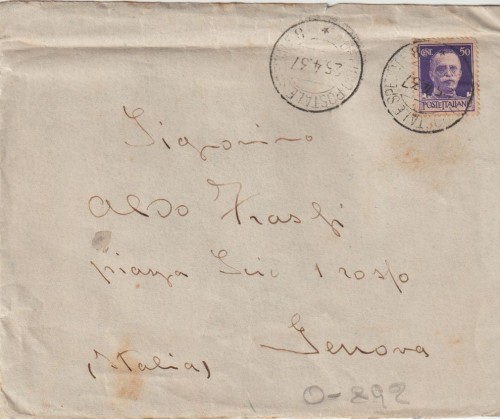 CENT. 50
POSTE ITALIANE
POSTALE
25.4.37
Signorino
Aldo Fraschi
piazza
Genova
(Italia)
O-892